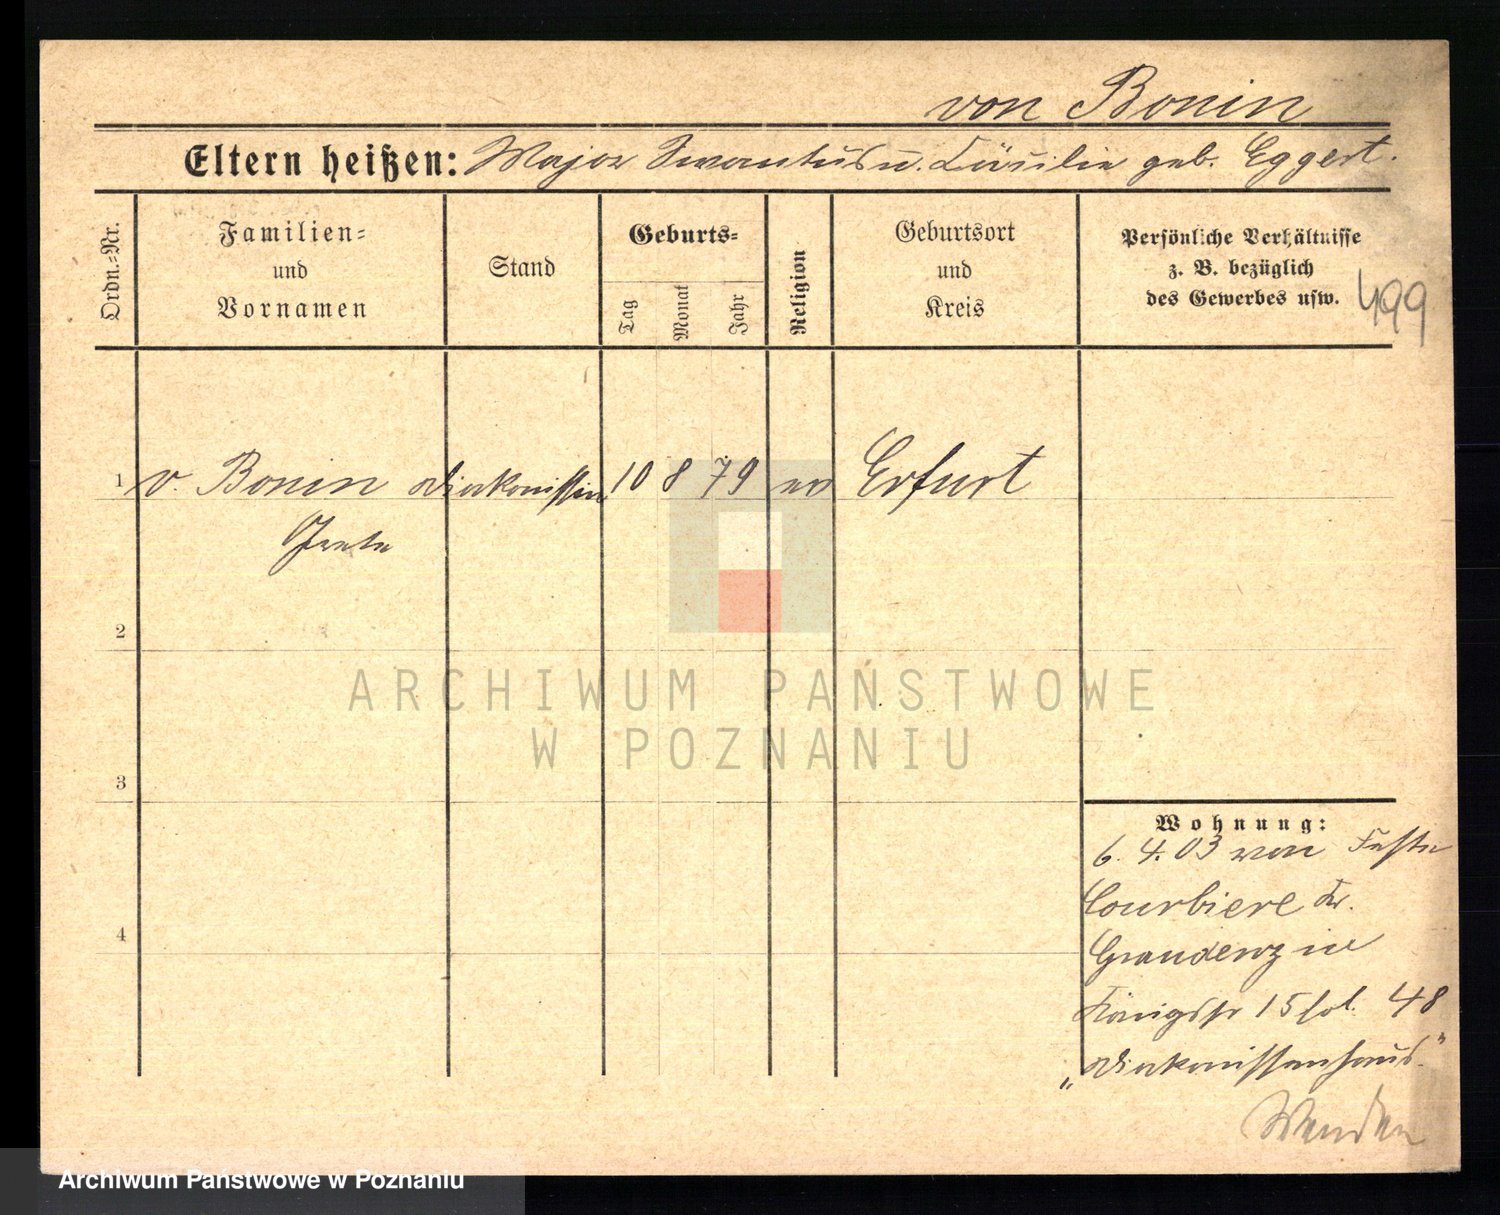 von Bonin
Eltern heißen: Major Swantus u. Cäcilie geb. Eggert.
Ordn.-Nr.
Familien-
und
Vornamen
Stand
Geburts-
Tag
Monat
Jahr
Religion
Geburtsort
und
Kreis
Persönliche Verhältnisse
z. B. bezüglich
des Gewerbes usw.
499
1 v. Bonin Diakonissin 10 8 79 ev Erfurt
2
3
4
ARCHIWUM PAŃSTWOWE
W POZNANIU
Wohnung:
6. 4. 03 von Feste
Courbiere Kr.
Graudenz in
Königsstr 15 fol. 48
„Diakonissenhaus"
Wenden
Archiwum Państwowe w Poznaniu